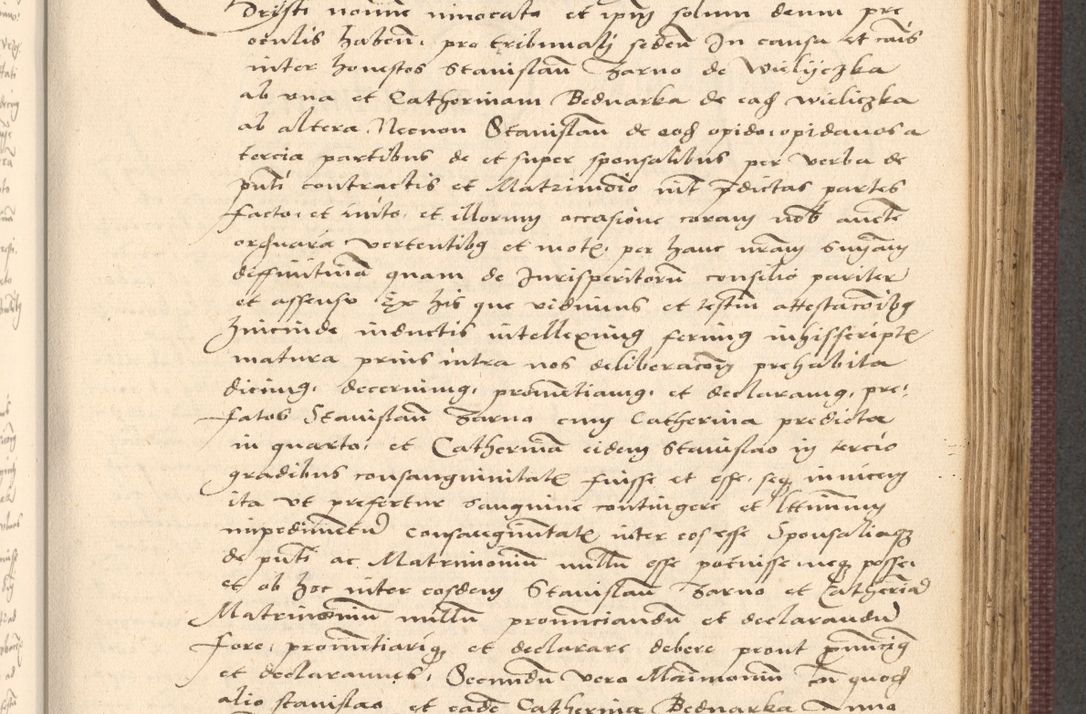 Christi nomine invocato et ipm̃ solum deum pre
oculis habeñ. pro tribunali sedeñ In causa et cãis
inter honestos Stanislaũ Zarno de Wieliczka
ab una et Catherinam Bednarka de eađ Wieliczka
ab altera Necnon Stanislaũ de eođ opido opidanos a
tercia partibus de et super sponsalibus per verba de
pñti contractis et Matrimonio int p̃dictas partes
facto et inito, et illorum occasione coram nob̃ aucte
ordinaria vertentibq et mot. per hanc nr̃am sñiam
diffinitivã quam de Jurisperitorũ consilio pariter
et assensu Ex his que vidimus et testiũ attestac̃oibq
hincinde inductis intelleximq ferimq inhisscriptis
matura prius intra nos deliberac̃om prehabita
dicimq, decernimq, pronũtiamq, et declaramq, pre-
fatos Stanislaũ Zarno cum Catherina predicta
in quarto, et Catherinã eidem Stanislao in tercio
gradibus consanguinitatis fuisse et esse, seq invicem
ita ut prefertur sanguine contingere et lttimum
impedimentũ consanguinitatis inter eos esse Sponsaliaq
de pñti ac Matrimoniũ nullũ esse potuisse neq posse,
et ob hoc inter eosdem Stanislaũ Zarno et Catherinã
Matrimoniũ nullũ pronunciandũ et declarandũ
fore, pronũtiariq et declarare debere prout pñunciamq
et declaramus, Secundũ vero Matrimoniũ cũ quođ
alio Stanislao et eadẽ Catherina Bednarka Anno